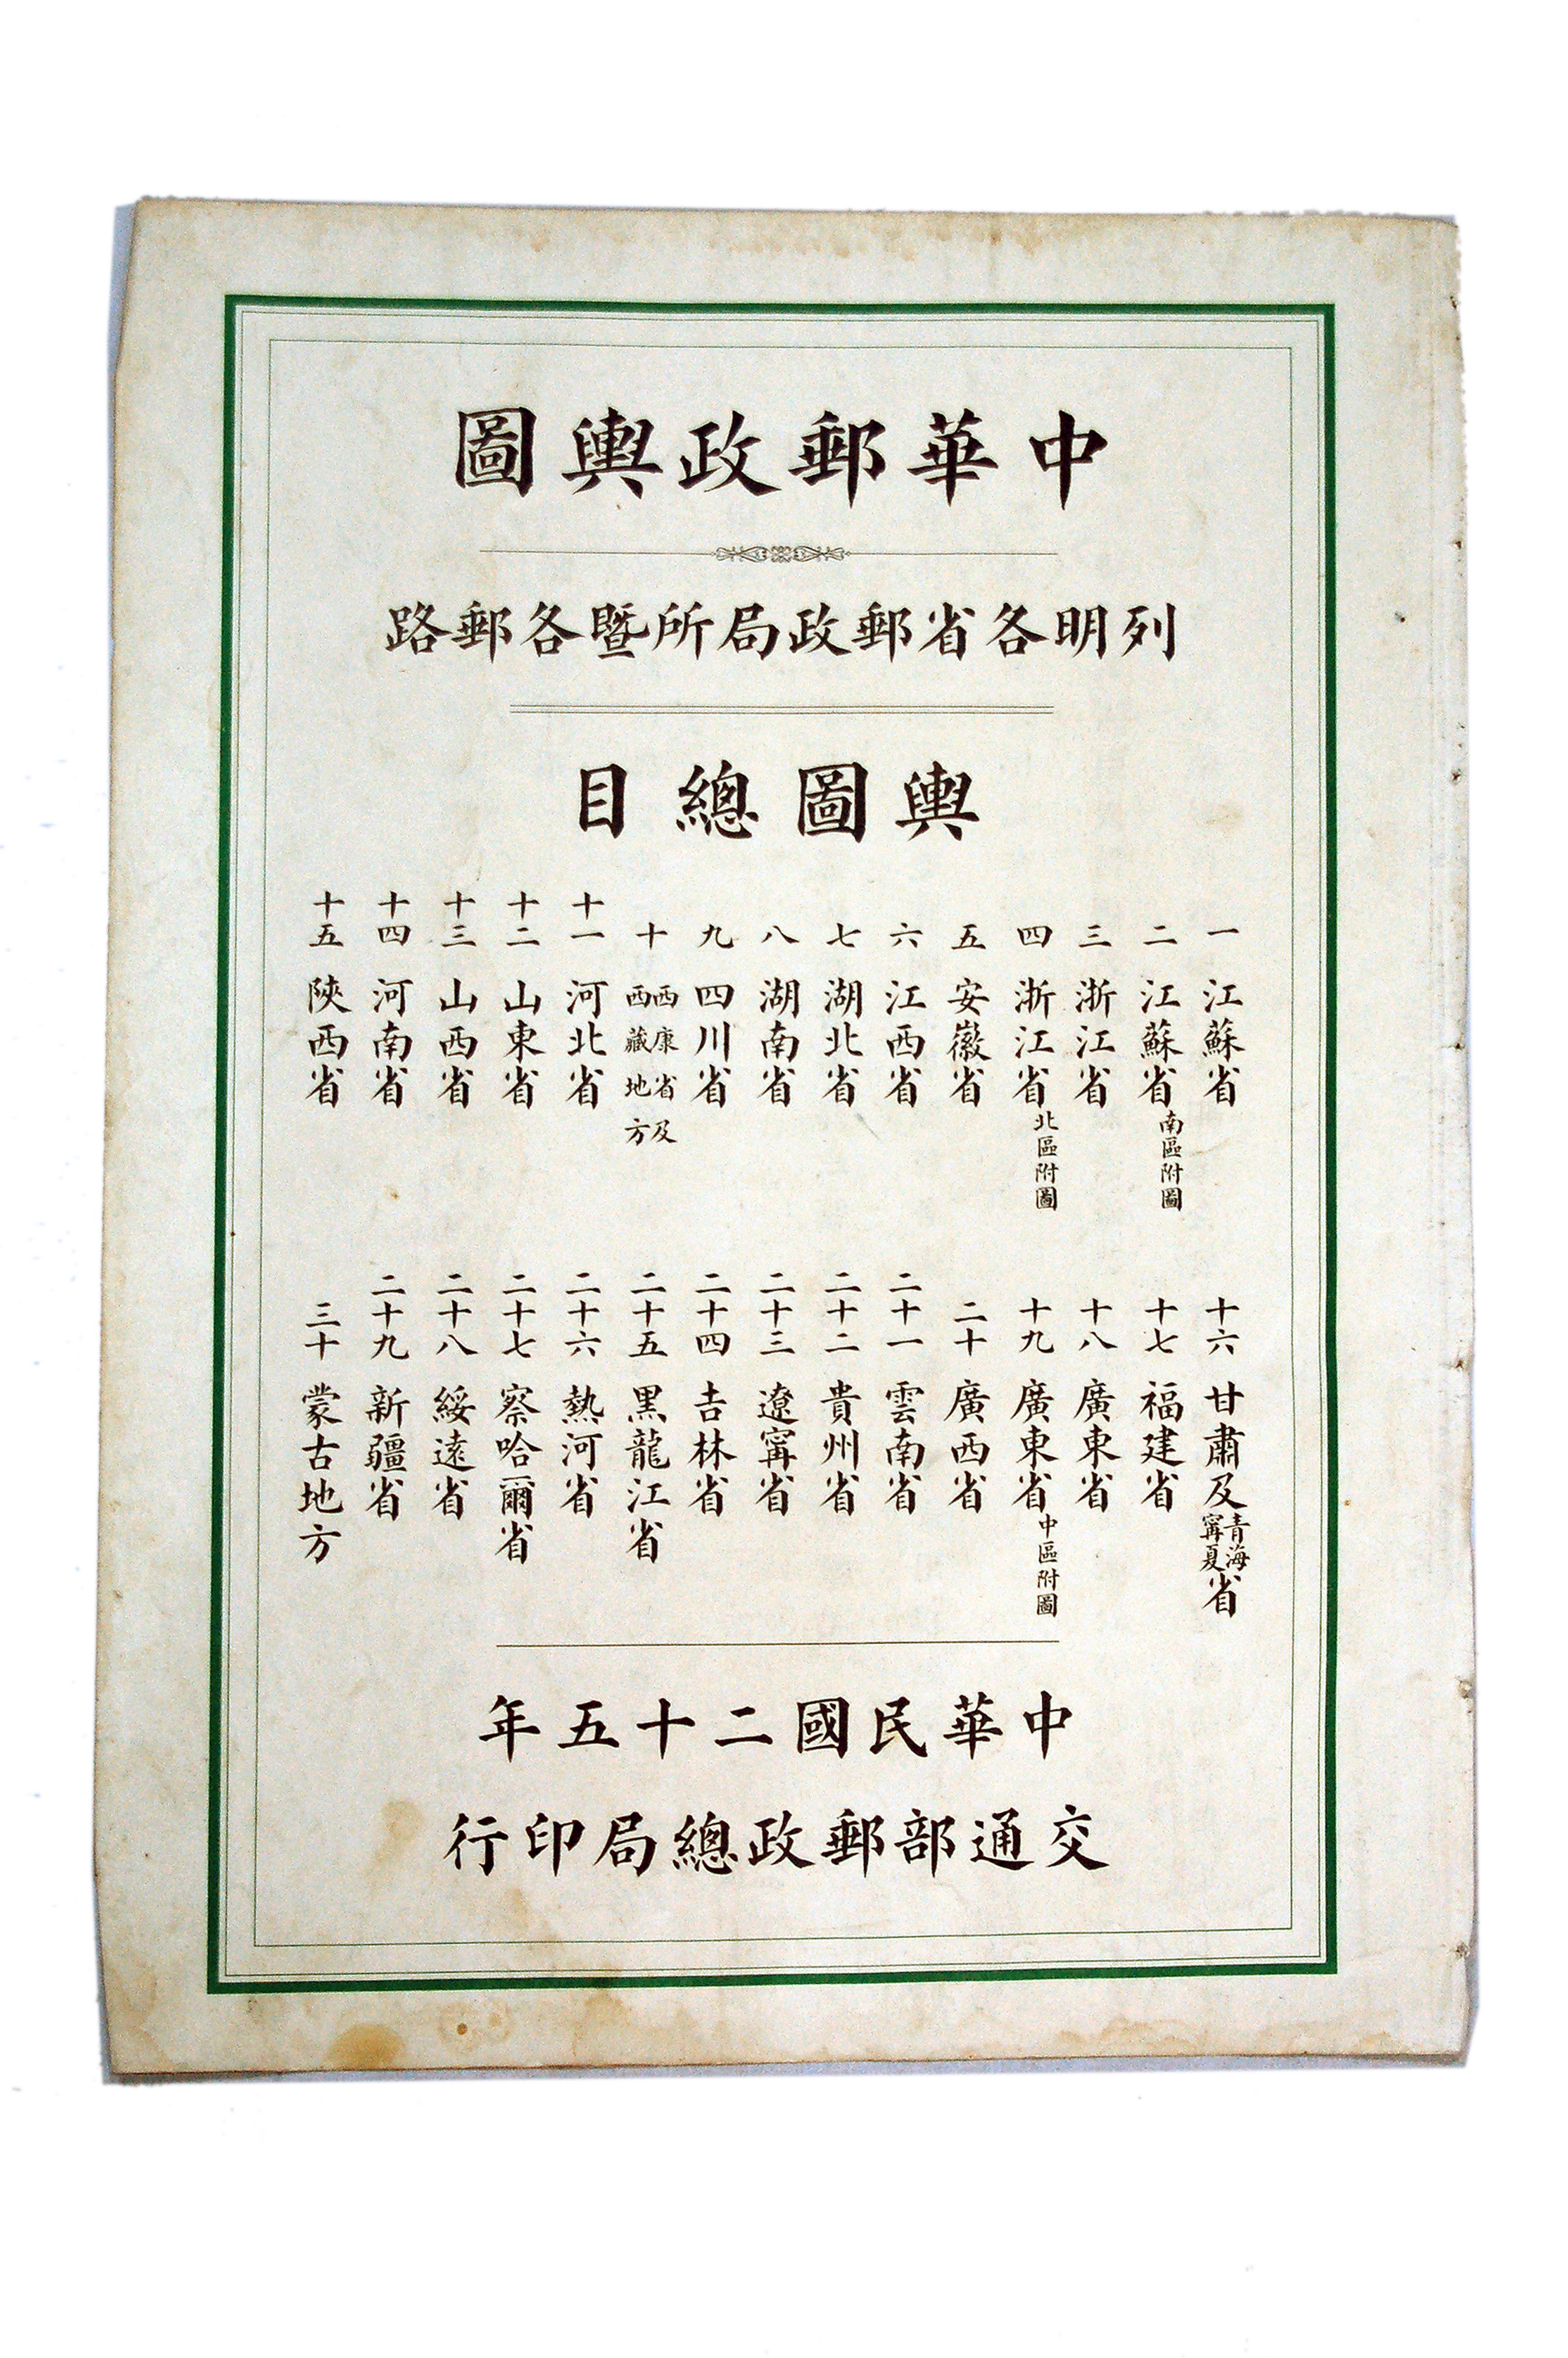 中華郵政輿圖
列明各省郵政局所暨各郵路
輿圖總目
一 江蘇省
二 江蘇省南區附圖
三 浙江省
四 浙江省北區附圖
五 安徽省
六 江西省
七 湖北省
八 湖南省
九 四川省
十 西康省及西藏地方
十一 河北省
十二 山東省
十三 山西省
十四 河南省
十五 陝西省
十六 甘肅及青海寗夏省
十七 福建省
十八 廣東省
十九 廣東省中區附圖
二十 廣西省
二十一 雲南省
二十二 貴州省
二十三 遼寗省
二十四 吉林省
二十五 黑龍江省
二十六 熱河省
二十七 察哈爾省
二十八 綏遠省
二十九 新疆省
三十 蒙古地方
中華民國二十五年
交通部郵政總局印行